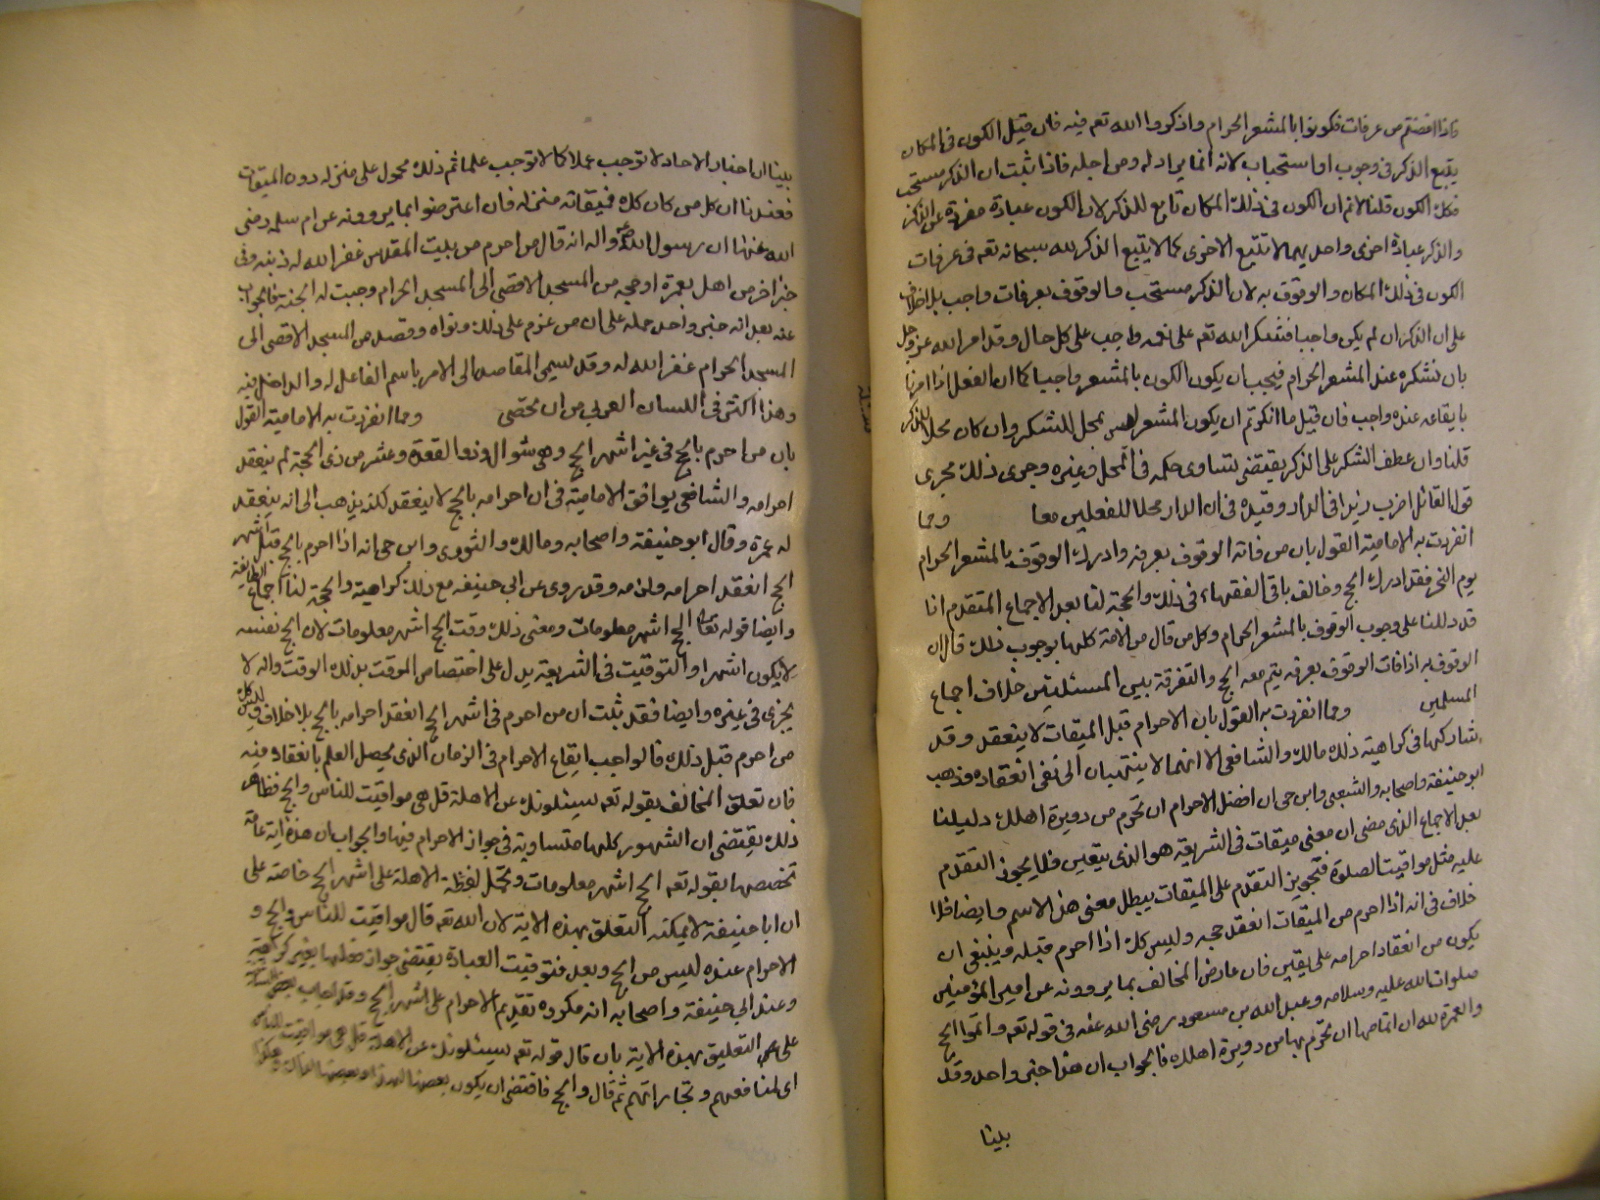 فاذا افضتم من عرفات فكونوا بالمشعر الحرام واذكروا الله تعه فيه فان قيل الكون فى المكان
يتبع الذكر فى وجوب او استحباب لانه انما يراد له ومن اجله فاذا ثبت ان الذكر مستحب
فكذلك الكون قلنا لا نم ان الكون فى ذلك المكان تابع للذكر لان الكون عبادة مفردة عن الذكر
والذكر عبادة اخرى واحديهما لا تتبع الاخرى كما لا يتبع الذكر لله سبحانه تعه فى عرفات
الكون فى ذلك المكان والوقوف به لان الذكر مستحب والوقوف بعرفات واجب بلا خلاف
على ان الذكر ان لم يكن واجبا فشكر الله تعه على نعمه واجب على كل حال وقد امر الله عز وجل
بان نشكره عند المشعر الحرام فيجب ان يكون الكون بالمشعر واجبا كما ان الفعل اذا امرنا
بايقاعه عنده واجب فان قيل ما انكرتم ان يكون المشعر ليس بمحل للشكر وان كان محلا للذكر
قلنا وان عطف الشكر على الذكر يقتضى تساوى حكمه فى المحل وغيره وجرى ذلك مجرى
قول القائل اضرب زيدا فى الدار وقيده فى ان الدار محلا للفعلين معا ومما
انفردت به الامامية القول بان من فاته الوقوف بعرفة وادرك الوقوف بالمشعر الحرام
يوم النحر فقد ادرك الحج وخالف باقى الفقهاء فى ذلك والحجة لنا بعد الاجماع المتقدم انا
قد دللنا على وجوب الوقوف بالمشعر الحرام وكل من قال من الامة كلها بوجوب ذلك قال ان
الوقوف به اذا فات الوقوف بعرفة يتم معه الحج والتفرقة بين المسئلتين خلاف اجماع
المسلمين ومما انفردت به القول بان الاحرام قبل الميقات لا ينعقد وقد
يشاركها فى كراهية ذلك مالك والشافعى الا انهما لا ينتهيان الى نفى انعقاده وذهب
ابو حنيفة واصحابه والشعبى وابن حى ان افضل الاحرام ان تحرم من دويرة اهلك دليلنا
بعد الاجماع الذى مضى ان معنى ميقات فى الشريعة هو الذى يتعين فلا يجوز التقدم
عليه مثل مواقيت الصلوة فتجويز التقدم على الميقات يبطل معنى هذا الاسم وايضا فلا
خلاف فى انه اذا احرم من الميقات انعقد حجه وليس كك اذا احرم قبله وينبغى ان
يكون من انعقاد احرامه على يقين فان عارض المخالف بما يروونه عن امير المؤمنين
صلوات الله عليه وسلامه وعبد الله بن مسعود رضى الله عنه فى قوله تعه واتموا الحج
والعمرة لله ان اتمامها ان تحرم بها من دويرة اهلك فالجواب ان هذا خبر واحد وقد
بينا
بينا ان اخبار الاحاد لا توجب عملا كما لا توجب علما ثم ذلك محمول على من منزله دون الميقات
فعندنا ان كل من كان كك فميقاته منزله فان اعترضوا بما يروونه عن ام سلمه رضى
الله عنها ان رسول الله ص واله انه قال من احرم من بيت المقدس غفر الله له ذنبه وفى
خبر اخر من اهل بعمرة او حجه من المسجد الاقصى الى المسجد الحرام وجبت له الجنة فالجواب
عنه بعد انه خبر واحد حمله على ان من عزم على ذلك ونواه وقصد من المسجد الاقصى الى
المسجد الحرام غفر الله له وقد يسمى القاصد الى الامر باسم الفاعل له والداخل فيه
وهذا اكثر فى اللسان العربى من ان يحصى ومما انفردت به الامامية القول
بان من احرم بالحج فى غير اشهر الحج وهى شوال وذو القعدة وعشر من ذى الحجة لم ينعقد
احرامه والشافعى يوافق الامامية فى ان احرامه بالحج لا ينعقد لكنه يذهب الى انه ينعقد
له عمرة وقال ابو حنيفة واصحابه ومالك والثورى وابن حى انه اذا احرم بالحج قبل اشهر
الحج انعقد احرامه ولزمه وقد روى عن ابى حنيفه مع ذلك كراهية والحجة لنا اجماع الطايفة
وايضا قوله تعالى الحج اشهر معلومات ومعنى ذلك وقت الحج اشهر معلومات لان الحج نفسه
لا يكون اشهرا والتوقيت فى الشريعة يدل على اختصاص الموقت بذلك الوقت وانه لا
يجزى فى غيره وايضا فقد ثبت ان من احرم فى اشهر الحج انعقد احرامه بالحج بلا خلاف وليس كك
من احرم قبل ذلك فالواجب ايقاع الاحرام فى الزمان الذى يحصل العلم بانعقاده فيه
فان تعلق المخالف بقوله تعه يسئلونك عن الاهلة قل هى مواقيت للناس والحج فظاهر
ذلك يقتضى ان الشهور كلها متساوية فى جواز الاحرام فيها والجواب ان هذه اية عامة
تخصصها بقوله تعه الحج اشهر معلومات وتحمل لفظة الاهلة على اشهر الحج خاصة على
ان ابا حنيفة لا يمكنه التعلق بهذه الاية لان الله تعه قال مواقيت للناس والحج و
الاحرام عنده ليس من الحج وبعد فتوقيت العبادة يقتضى جواز فعلها بغير كراهية
وعند ابى حنيفة واصحابه انه مكروه تقديم الاحرام على اشهر الحج وقد اجاب بعض
على التعليق بهذه الاية بان قال قوله تعه يسئلونك عن الاهلة قل هى مواقيت للناس
اى لمنافعهم وتجاراتهم ثم قال والحج فاقتضى ان يكون بعضها لهذا وبعضها لذاك وهكذا